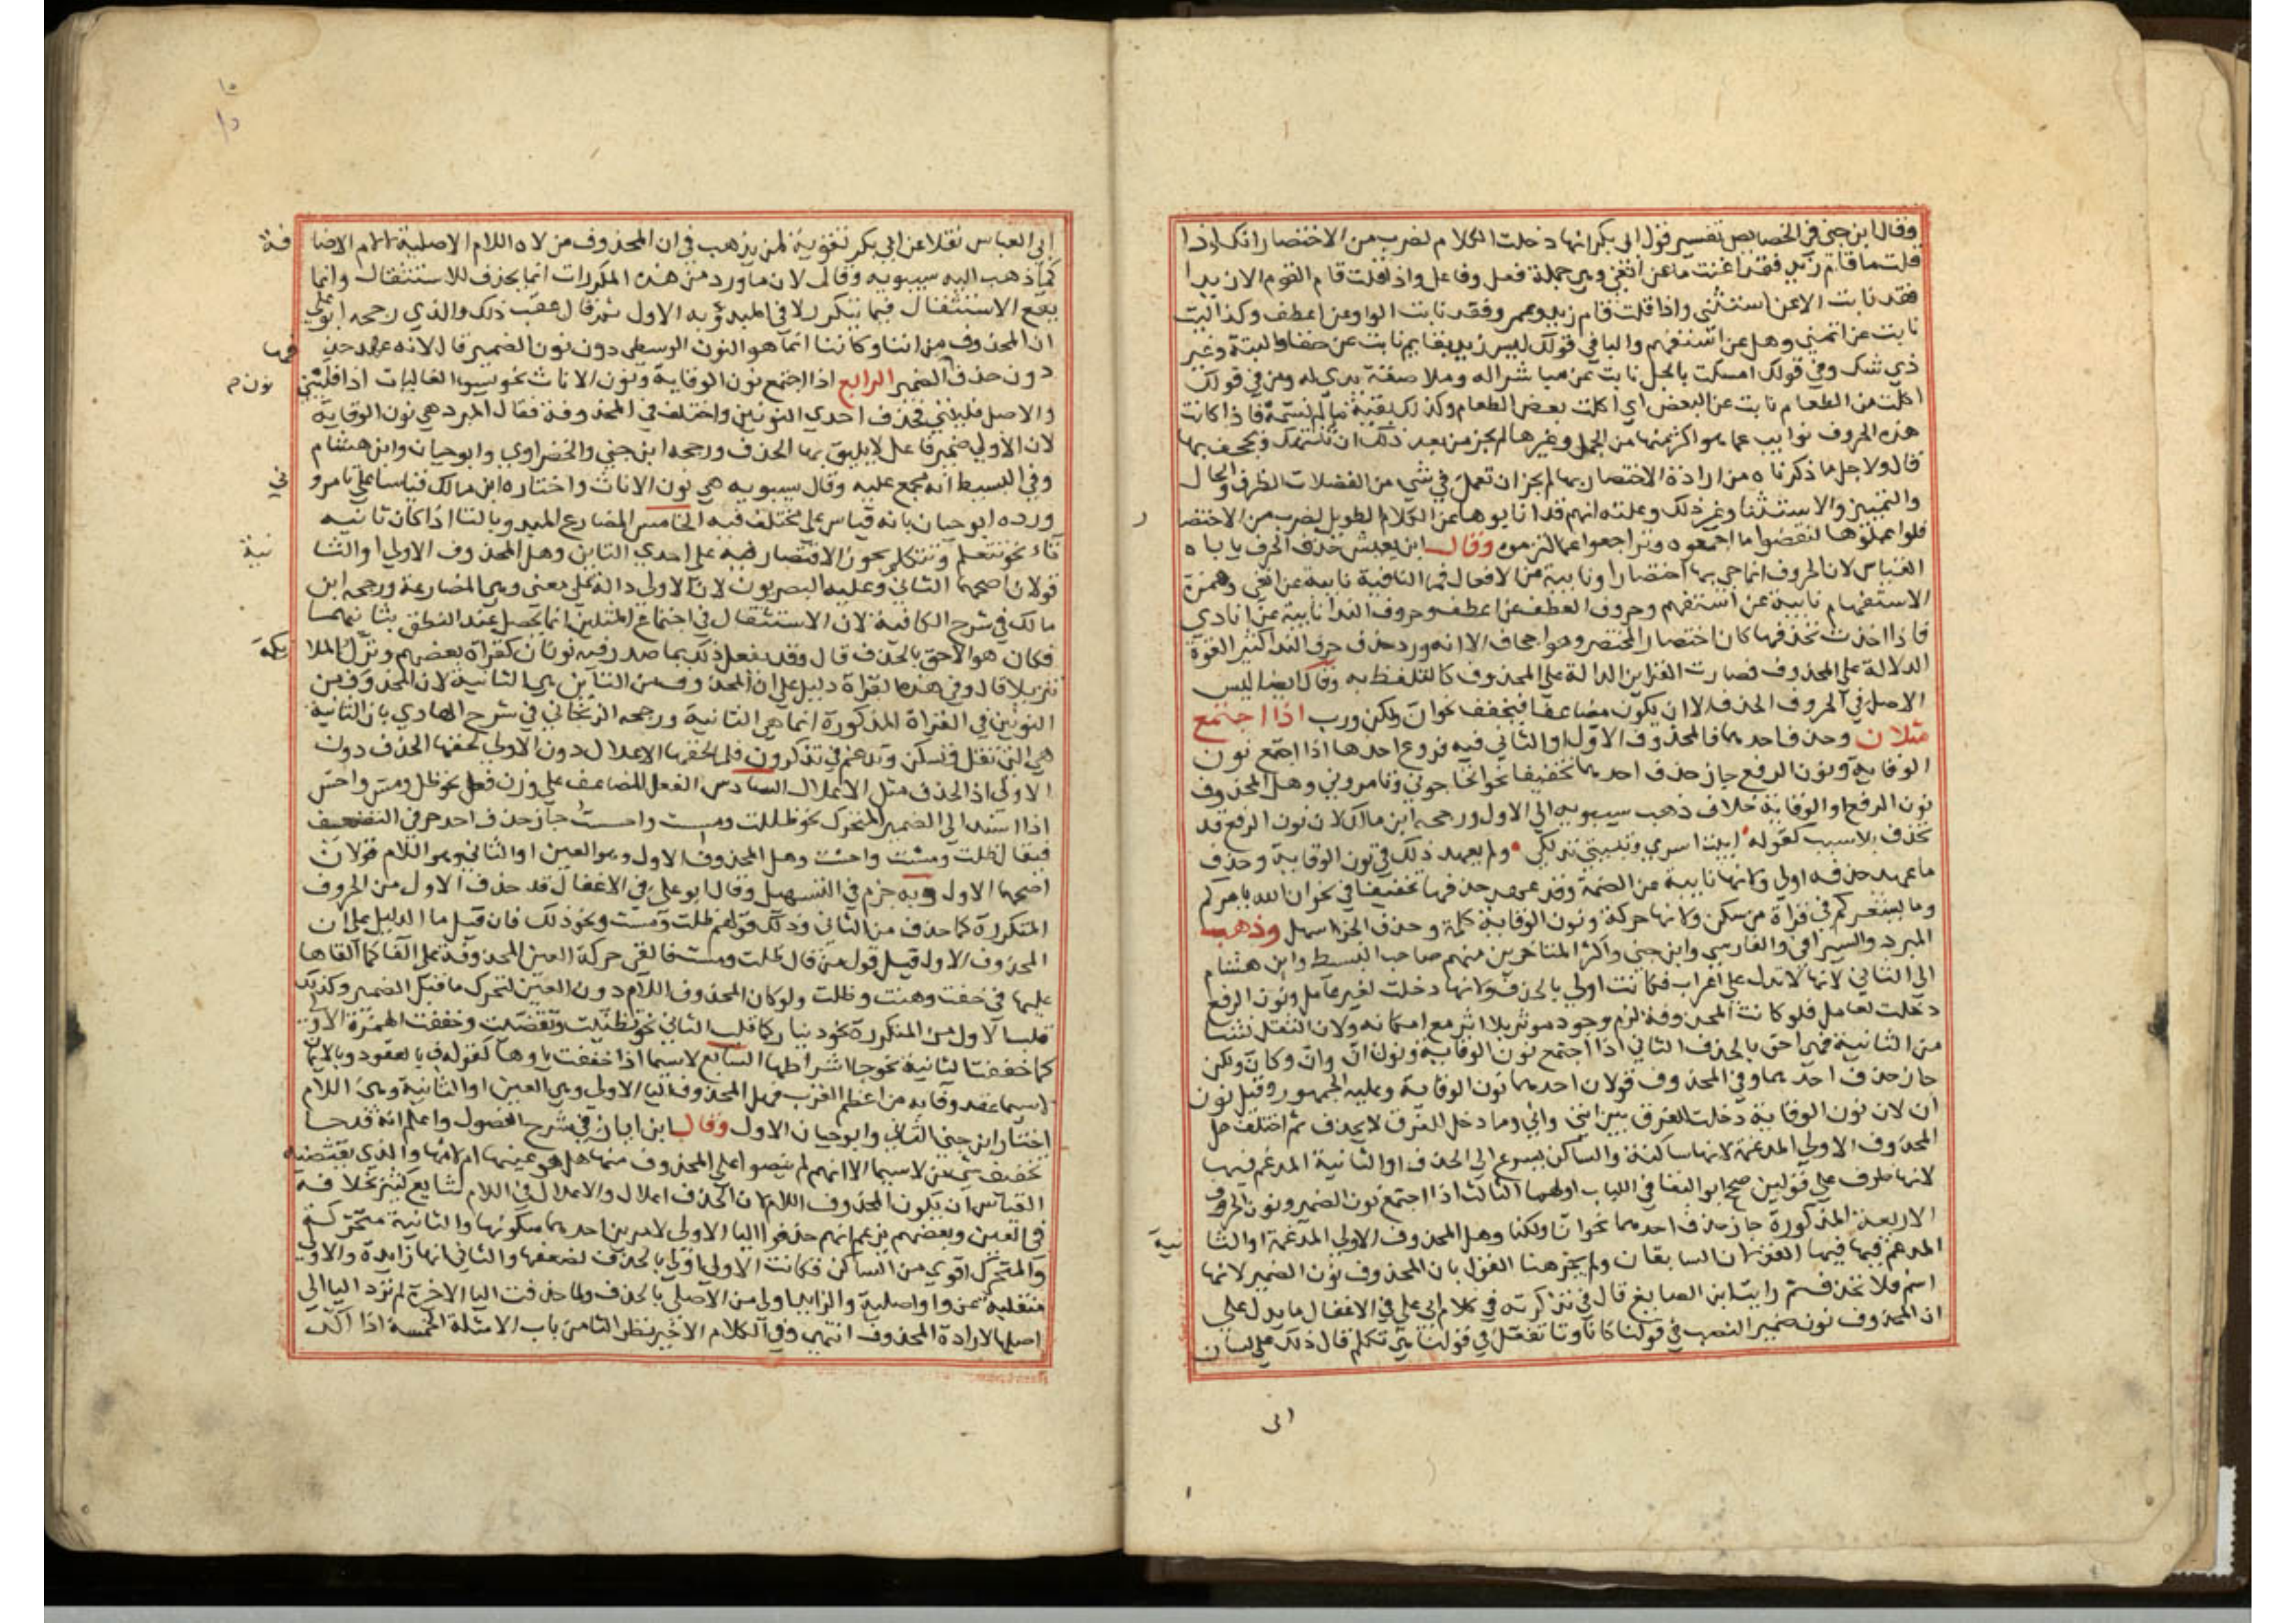 وقال ابن جني في الخصايص تفسير قول ابى بكر انها دخلت الكلام لضرب من الاختصار انك اذا
قلت ما قام زيد فقد اغنت ما عن انفي وهي جملة فعل وفاعل واذا قلت قام القوم الا زيدا
فقد نابت الا عن استثنى واذا قلت قام زيد وعمرو فقد نابت الواو عن اعطف وكذا ليت
نابت عن اتمنى وهل عن استفهم والبا في قولك ليس زيد بقايم نابت عن حقا والبتة وغير
ذي شك وفي قولك امسكت بالحبل نابت عن مباشرا له وملاصقة يدي له ومن في قولك
اكلت من الطعام نابت عن البعض اي اكلت بعض الطعام وكذلك بقية ما لم نسمه فاذا كانت
هذه الحروف نوايب عما هو اكثر منها من الجمل وغيرها لم يجز من بعد ذلك ان تنتهك ويجحف بها
قال ولاجل ما ذكرناه من ارادة الاختصار بها لم يجز ان تعمل في شي من الفضلات الظرف والحال
والتمييز والاستثنا وغير ذلك وعلته انهم قد انابوها عن الكلام الطويل لضرب من الاختصا ر
فلو اعملوها لنقضوا ما اجمعوه وتراجعوا عما التزموه وقال ابن يعيش حذف الحرف ياباه
القياس لان الحروف انما جي بها اختصارا ونايبة من الافعال فما النافية نايبة عن انفي وهمزة
الاستفهام نايبة عن استفهم وحروف العطف عن اعطف وحروف الندا نايبة عن انادي
فاذا اخذت تحذفها كان اختصار المختصر وهو اجحاف الا انه ورد حذف حرف الندا كثيرا لقوة
الدلالة على المحذوف فصارت القراين الدالة على المحذوف كالتلفظ به وقال ايضا ليس
الاصل في الحروف الحذف الا ان يكون مضاعفا فيخفف نحو ان ولكن ورب اذا اجتمع
مثلان وحذف احدهما فالمحذوف الاول او الثاني فيه فروع احدها اذا اجتمع نون
الوقاية ونون الرفع جاز حذف احدهما تخفيفا نحو اتحاجوني وتامروني وهل المحذوف
نون الرفع او الوقاية خلاف ذهب سيبويه الى الاول ورجحه ابن مالك لان نون الرفع قد
تحذف بلا سبب كقوله ابيت اسري وتبيتي تدلكي ولم يعهد ذلك في نون الوقاية وحذف
ما عهد حذفه اولى ولانها نايبة عن الضمة وقد عهد حذفها تخفيفا في نحو ان الله يامركم
وما يشعركم في قراة من سكن ولانها حركة ونون الوقاية كلمة وحذف الجزء اسهل وذهب
المبرد والسيرافي والفارسي وابن جني واكثر المتاخرين منهم صاحب البسيط وابن هشام
الى الثاني لانها لا تدل على اعراب فكانت اولى بالحذف ولانها دخلت لغير عامل ونون الرفع
دخلت لعامل فلو كانت المحذوفة لزم وجود موثر بلا اثر مع امكانه ولان الثقل نشا
من الثانية فهي احق بالحذف الثاني اذا اجتمع نون الوقاية ونون ان وان وكان ولكن
جاز حذف احدهما وفي المحذوف قولان احدهما نون الوقاية وعليه الجمهور وقيل نون
ان لان نون الوقاية دخلت للفرق بين انني واني وما دخل للفرق لا يحذف ثم اختلف هل
المحذوف الاولى المدغمة لانها ساكنة والساكن يسرع الى الحذف او الثانية المدغم فيها
لانها طرف على قولين صحح ابو البقا في اللباب اولهما الثالث اذا اجتمع نون الضمير ونون الحروف
الاربعة المذكورة جاز حذف احدهما نحو انا ولكنا وهل المحذوف الاولى المدغمة او الثا نية
المدغم فيها فيها القولان السابقان ولم يجز هنا القول بان المحذوف نون الضمير لانها
اسم فلا تحذف ثم رايت ابن الصايغ قال في تذكرته في كلام ابي علي في الاغفال ما يدل على
ان المحذوف نون ضمير النصب في قولنا كانا وتا تفعل في قولنا هي تكلم قال ذلك على لسان
ابى
١٥
ابي العباس نقلا عن ابي بكر تقوية لمن يذهب في ان المحذوف من لاه اللام الاصلية لا لام الاضا فة
كما ذهب اليه سيبويه وقال لان ما ورد من هذه المكررات انما يحذف للاستثقال وانما
يقع الاستثقال فيما يتكرر لا في المبدوء به الاول ثم قال عقب ذلك والذي رجحه ابو علي
ان المحذوف من اننا وكاننا انما هو النون الوسطى دون نون الضمير قال لانه عهد حذ فها
دون حذف الضمير الرابع اذا اجتمع نون الوقاية ونون الاناث نحو يسوء الفاليات اذا فليني
والاصل فلينني فحذف احدي النونين واختلف في المحذوفة فقال المبرد هي نون الوقاية
لان الاولى ضمير فاعل لا يليق بها الحذف ورجحه ابن جني والخضراوي وابو حيان وابن هشام
وفي البسيط انه مجمع عليه وقال سيبويه هي نون الاناث واختاره ابن مالك قياسا على تامرو ني
ورده ابو حيان بانه قياس على مختلف فيه الخامس المضارع المبدو بالتا اذا كان ثانيه
تاء نحو تتعلم وتتكلم يجوز الاقتصار فيه على احدي التاين وهل المحذوف الاولى او الثا نية
قولان اصحهما الثاني وعليه البصريون لان الاولى دالة على معنى وهي المضارعة ورجحه ابن
مالك في شرح الكافية لان الاستثقال في اجتماع المثلين انما يحصل عند النطق بثانيهما
فكان هو الاحق بالحذف قال وقد يفعل ذلك بما صدر فيه نونان كقراة بعضهم ونزل الملا يكة
تنزيلا قال وفي هذه القراة دليل على ان المحذوف من التاين هي الثانية لان المحذوف من
النونين في القراة المذكورة انما هي الثانية ورجحه الزنجاني في شرح الهادي بان الثانية
هي التي تعتل فتسكن وتدغم في تذكرون فلما لحقها الاعلال دون الاولى لحقها الحذف دون
الاولى اذ الحذف مثل الاعلال السادس الفعل المضاعف على وزن فعل نحو ظل ومس واحس
اذا اسند الى الضمير المتحرك نحو ظللت ومسست واحسست جاز حذف احد حرفي التضعيف
فيقال ظلت ومست واحست وهل المحذوف الاول وهو العين او الثاني وهو اللام قولان
اصحهما الاول وبه جزم في التسهيل وقال ابو علي في الاغفال قد حذف الاول من الحروف
المتكررة كما حذف من الثاني وذلك قولهم ظلت ومست ونحو ذلك فان قيل ما الدليل على ان
المحذوف الاول قيل قول من قال ظلت ومست فالقى حركة العين المحذوفة على الفا كما القاها
عليها في خفت وهبت وظلت ولو كان المحذوف اللام دون العين لتحرك ما قبل الضمير وكذلك
قلب الاول من المتكررة نحو دينار كما قلب الثاني نحو تظنيت وتقضيت وخففت الهمزة الاولى
كما خففت الثانية نحو جا اشراطها السابع لاسيما اذا خففت ياوها كقوله ف بالعقود وبالايمان
لاسيما عقد وفا به من اعظم القرب فهل المحذوف اليا الاولى وهي العين او الثانية وهي اللام
اختار ابن جني الثاني وابو حيان الاول وقال ابن اياز في شرح الفصول واعلم انه قد جا
تخفيف ... من لاسيما الا انهم لم ينصوا على المحذوف منها هل هو عينها ام لامها والذي يقتضيه
القياس ان يكون المحذوف اللام لان الحذف اعلال والاعلال في اللام شايع كثير بخلافه
في العين وبعضهم يزعم انهم حذفوا اليا الاولى لامرين احدهما سكونها والثانية متحركة
والمتحرك اقوي من الساكن فكانت الاولى اولى بالحذف لضعفها والثاني انها زايدة والاولى
منقلبة عن واو اصلية والزايد اولى من الاصلي بالحذف ولما حذفت اليا الاخرة لم ترد اليا الى
اصلها لارادة المحذوف انتهى وفي الكلام الاخير نظر الثامن باب الامثلة الخمسة اذا اكد